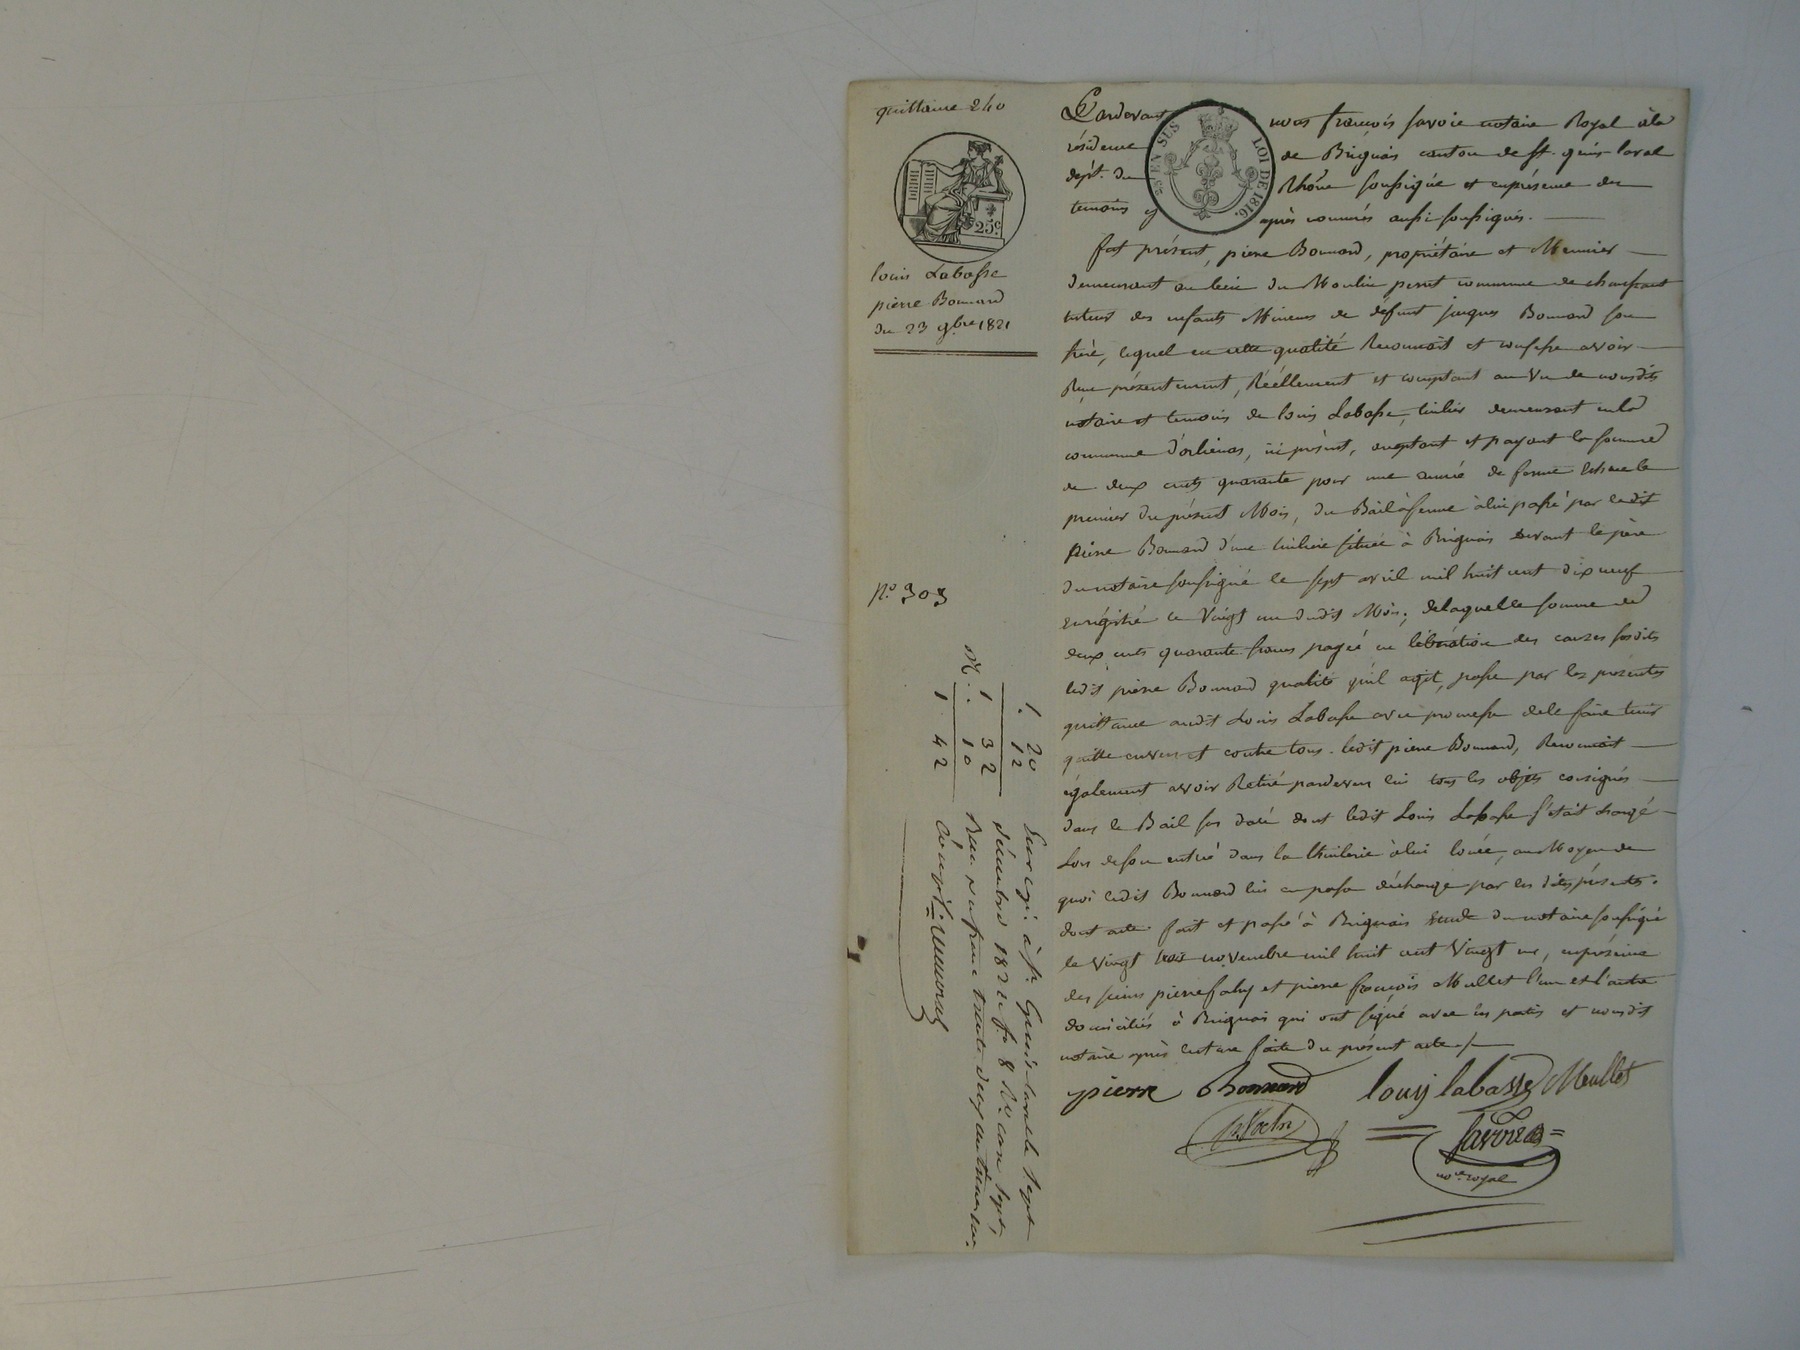 quittance 240
25c.
louis Labasse
pierre Bonnard
du 23 9bre 1821
N.o 303
Pardevant nous françois favoie notaire Royal à la
EN SUS
LOI DE 1816.
résidence de Brignais canton de St. genis-laval
dépt. du Rhône soussigné et en présence des
temoins cy après nommés aussi soussignés.
fut présent, pierre Bonnard, propriétaire et Meunier
demeurant au lieu du Moulin perret commune de
tuteur des enfants Mineurs de défunt jacques Bonnard son
frère, lequel en cette qualité Reconnoit et confesse avoir
Reçu présentement, Réellement et comptant au Vu de nousdits
notaire et temoins de louis Labasse, tuilier demeurant en la
commune d'orlienas, ici présent, acceptant et payant la somme
de deux cents quarante pour une année de ferme échue le
premier du présent Mois, du Bail à ferme à lui passé par ledit
pierre Bonnard d'une tuilerie située à Brignais devant le père
du notaire soussigné le sept avril mil huit cent dix neuf
enrégistré le Vingt un dudit Mois; de laquelle somme de
deux cents quarante francs payée en libération des causes susdits
ledit pierre Bonnard qualité qu'il agit, passe par les présentes
quittance audit Louis Labasse avec promesse de le faire tenir
quitte envers et contre tous. ledit pierre Bonnard, Reconnoit
également avoir Retiré pardevers lui tous les objets consignés
dans le Bail sus daté dont ledit Louis Labasse s'était chargé
Lors de son entrée dans la thuilerie à lui louée, au Moyen de
quoi ledit Bonnard lui en passe décharge par les dites présentes.
dont acte fait et passé à Brignais Etude du notaire soussigné
le Vingt trois novembre mil huit cent Vingt un, en présence
des sieurs pierre et pierre françois Mullet l'un et l'autre
domiciliés à Brignais qui ont signé avec les parties et nousdit
notaire après lecture faite du présent acte
pierre Bonnard louij labasse Mullet
not.re royal
1. 20
12
1 32
10
1 42
Enregé. à St. Genis-laval le sept
décembre 1821 f.o 8 V.o case sept,
Reçu un franc trente deux centimes